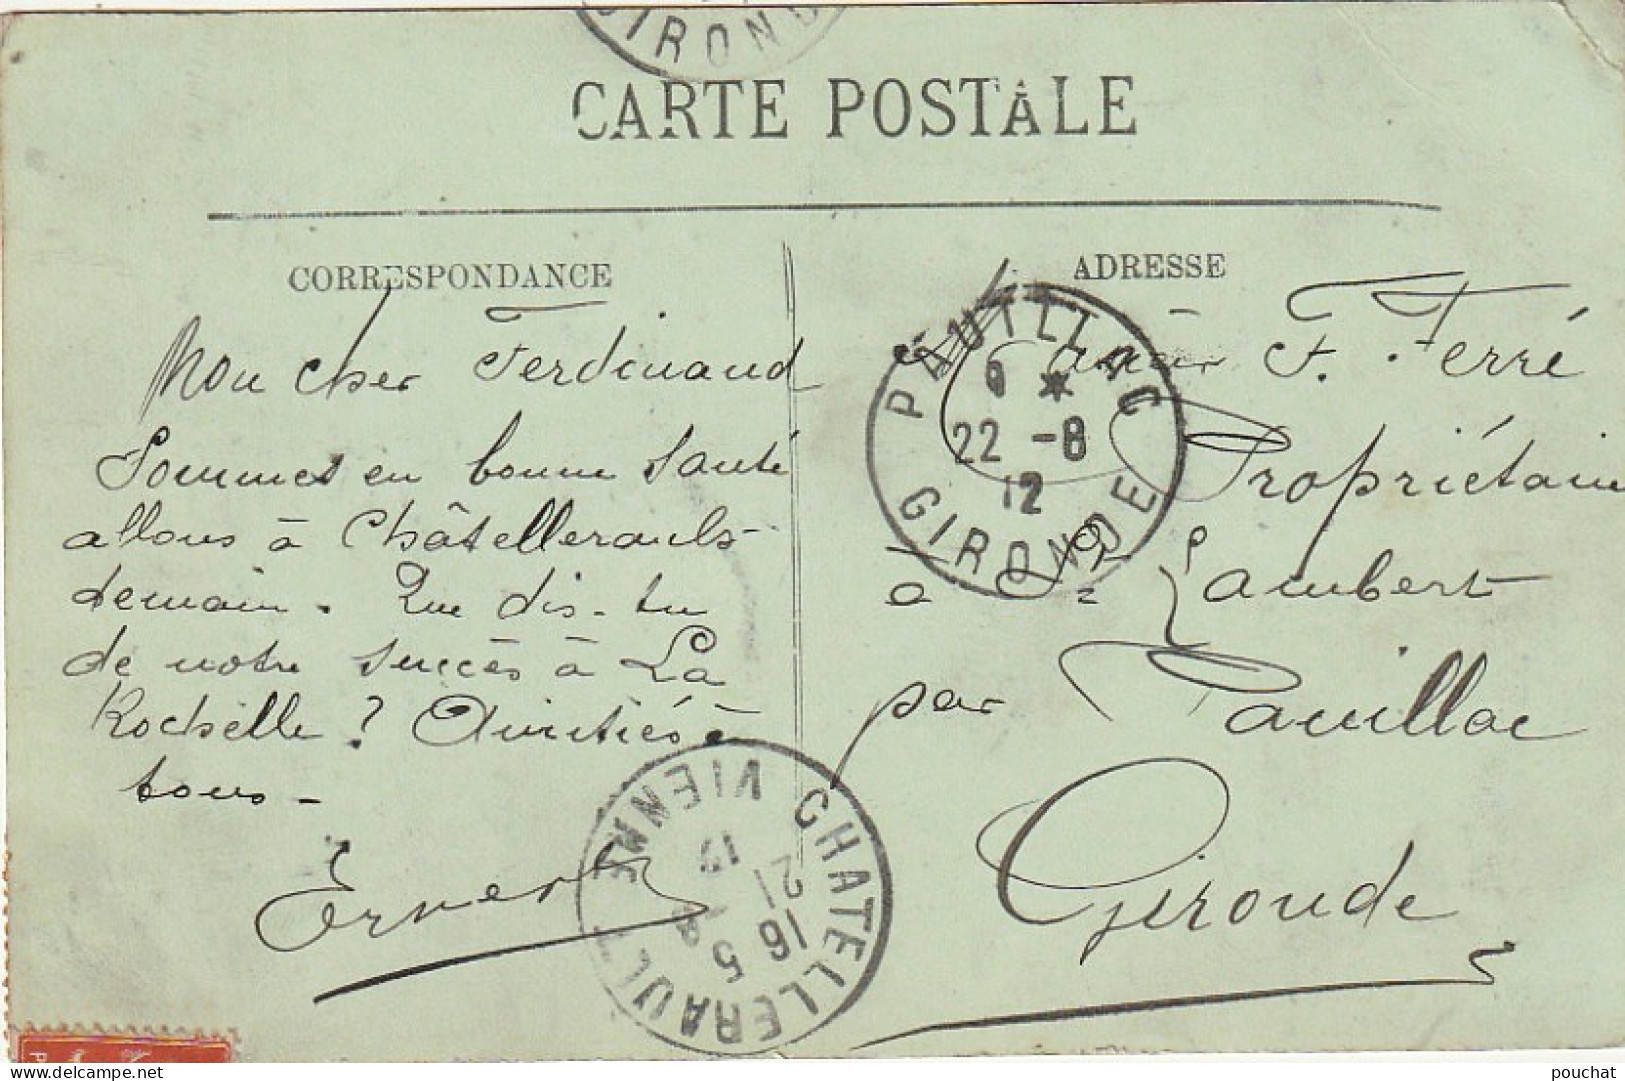 GIRONDE
CARTE POSTALE
CORRESPONDANCE
Mon cher Ferdinand
Sommes en bonne santé
allons à Châtellerault
demain. Que dis-tu
de notre succès à La
Rochelle? Amitiés à
tous-
Ernest
ADRESSE
F. Ferré
Propriétaire
à St Lambert
par Pauillac
Gironde
PAUILLAC
6 *
22 -8
12
GIRONDE
CHATELLERAULT
VIENNE
16 5
21 8
12
www.delcampe.net
pouchat